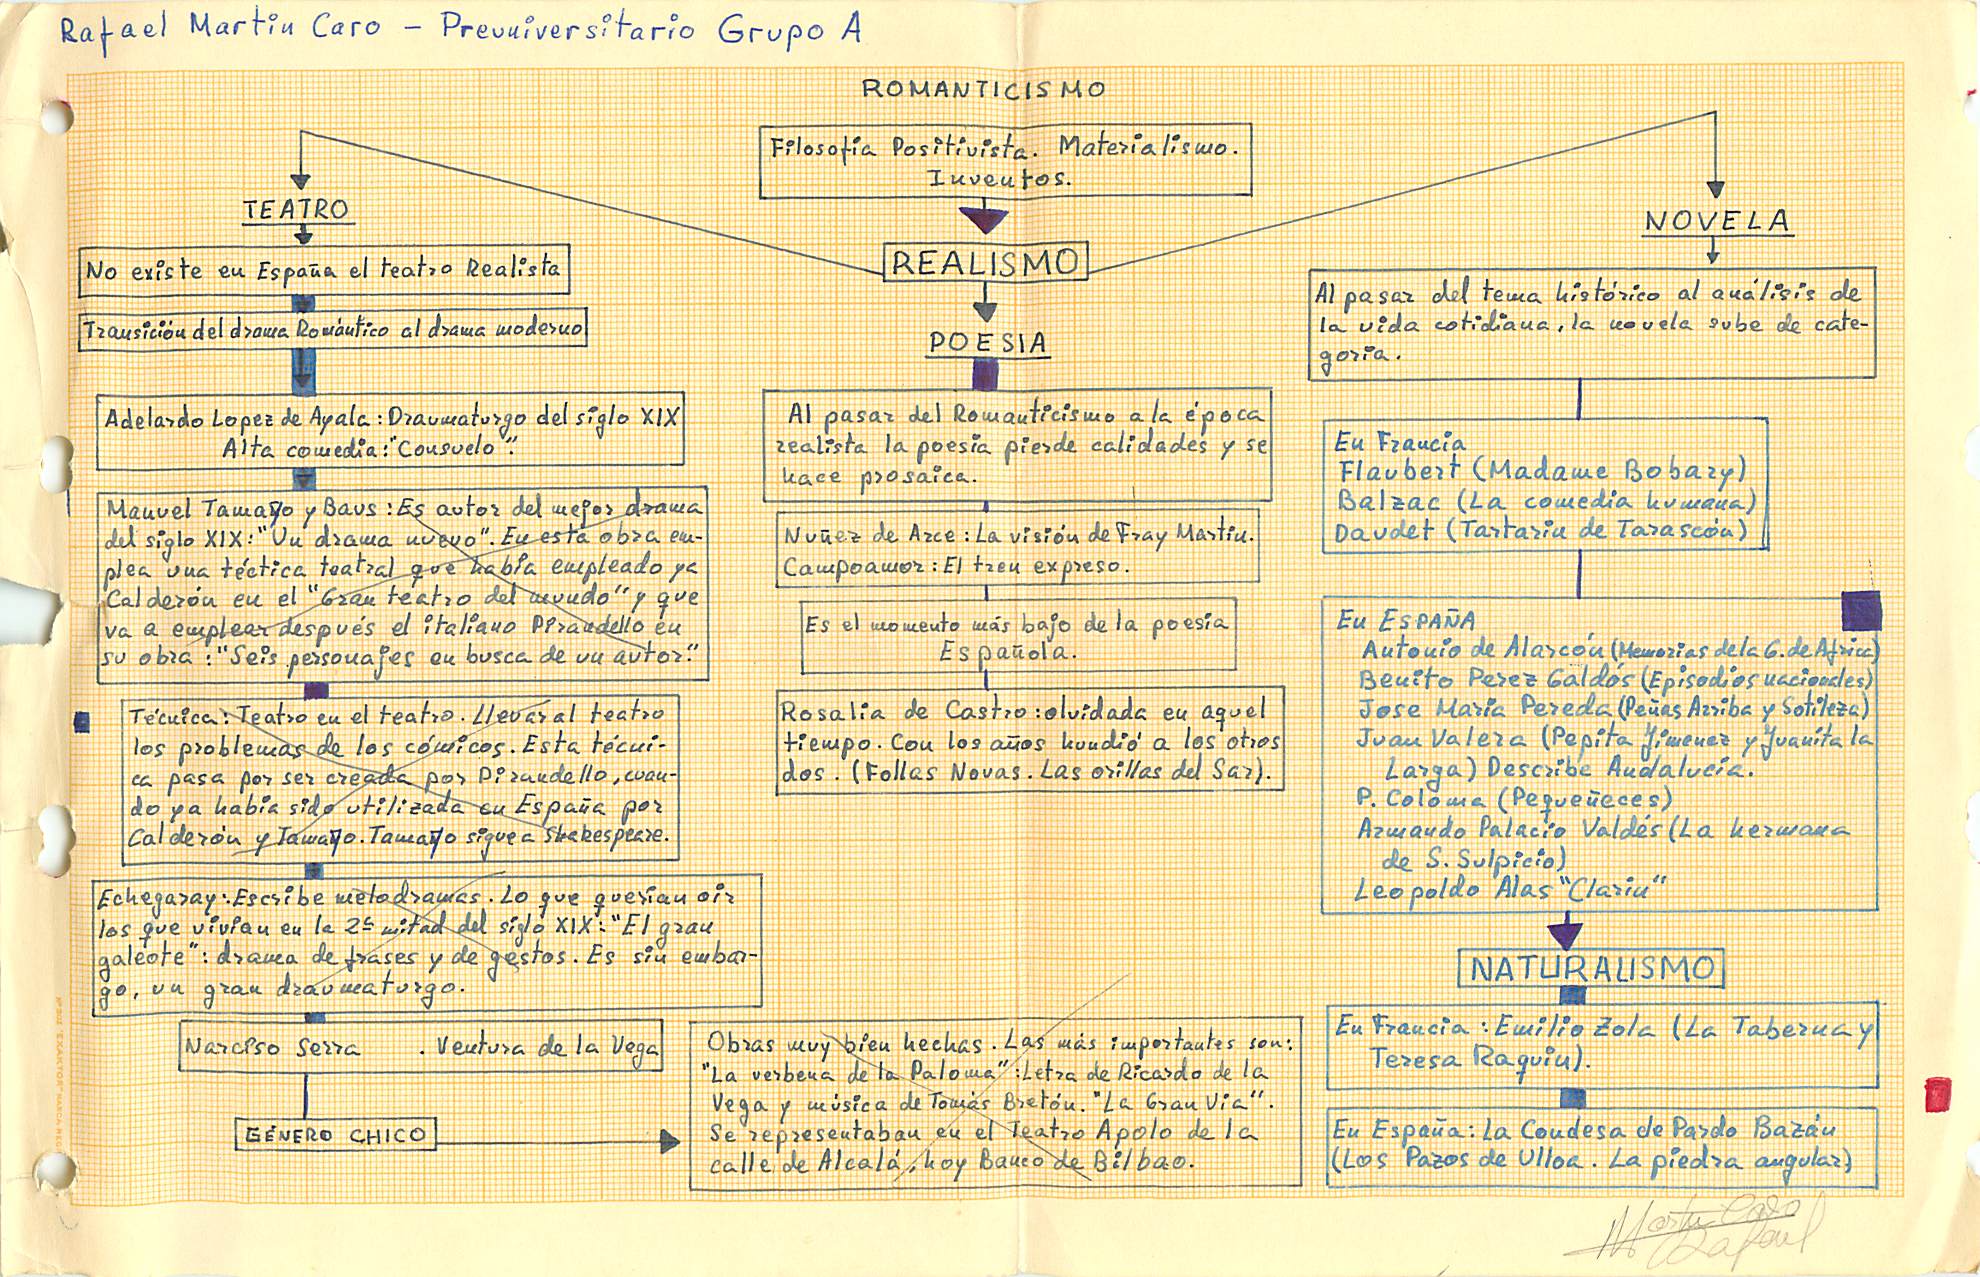 Rafael Martin Caro - Preuniversitario Grupo A
ROMANTICISMO
Filosofía Positivista. Materialismo.
Inventos.
REALISMO
TEATRO
No existe en España el teatro Realista
Transición del drama Romántico al drama moderno
Adelardo Lopez de Ayala: Dramaturgo del siglo XIX
Alta comedia: "Consuelo".
Manuel Tamayo y Baus: Es autor del mejor drama
del siglo XIX: "Un drama nuevo". En esta obra em-
plea una téctica teatral que había empleado ya
Calderón en el "Gran teatro del mundo" y que
va a emplear después el italiano Pirandello en
su obra: "Seis personajes en busca de un autor."
Técnica: Teatro en el teatro. Llevar al teatro
los problemas de los cómicos. Esta técni-
ca pasa por ser creada por Pirandello, cuan-
do ya había sido utilizada en España por
Calderón y Tamayo. Tamayo sigue a Shakespeare.
Echegaray: Escribe melodramas. Lo que querían oir
los que vivían en la 2ª mitad del siglo XIX: "El gran
galeote": drama de frases y de gestos. Es sin embar-
go, un gran dramaturgo.
Narciso Serra . Ventura de la Vega
GÉNERO CHICO
Obras muy bien hechas. Las más importantes son:
"La verbena de la Paloma": Letra de Ricardo de la
Vega y música de Tomás Bretón. "La Gran Via".
Se representaban en el Teatro Apolo de la
calle de Alcalá, hoy Banco de Bilbao.
POESIA
Al pasar del Romanticismo a la época
realista la poesía pierde calidades y se
hace prosaica.
Nuñez de Arce: La visión de Fray Martin.
Campoamor: El tren expreso.
Es el momento más bajo de la poesía
Española.
Rosalia de Castro: olvidada en aquel
tiempo. Con los años hundió a los otros
dos. (Follas Novas. Las orillas del Sar).
NOVELA
Al pasar del tema histórico al análisis de
la vida cotidiana, la novela sube de cate-
goría.
En Francia
Flaubert (Madame Bobary)
Balzac (La comedia humana)
Daudet (Tartarin de Tarascón)
En ESPAÑA
Antonio de Alarcón (Memorias de la G. de Africa)
Benito Perez Galdós (Episodios nacionales)
Jose María Pereda (Peñas Arriba y Sotileza)
Juan Valera (Pepita Jimenez y Juanita la
Larga) Describe Andalucía.
P. Coloma (Pequeñeces)
Armando Palacio Valdés (La hermana
de S. Sulpicio)
Leopoldo Alas "Clarin"
NATURALISMO
En Francia: Emilio Zola (La Taberna y
Teresa Raquin).
En España: La Condesa de Pardo Bazán
(Los Pazos de Ulloa. La piedra angular)
Martin Caro
Rafael